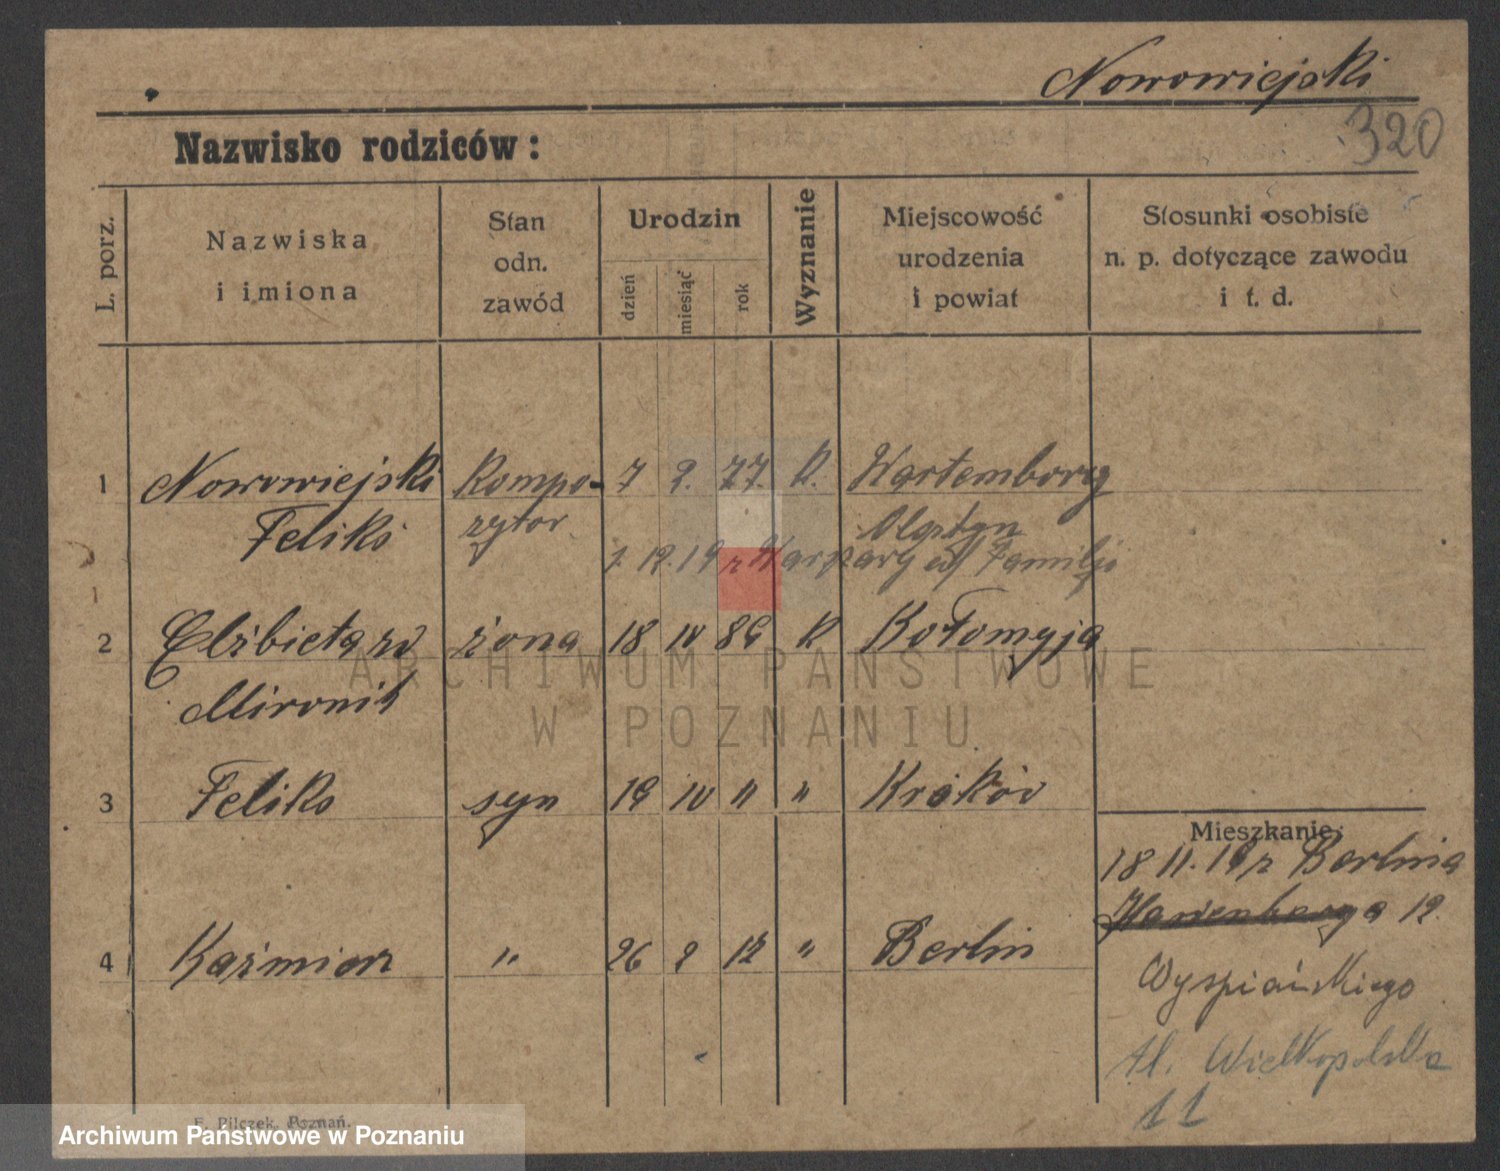 Nowowiejski
320
Nazwisko rodziców:
L. porz.
Nazwiska i imiona
Stan odn. zawód
Urodzin
dzień
miesiąc
rok
Wyznanie
Miejscowość urodzenia i powiat
Stosunki osobiste n. p. dotyczące zawodu i t. d.
1 Nowowiejski Kompo- 7 2. 77. K. Wartemborg
Feliks zytor Olsztyn
1. 12. 19 z Warszawy
2 Elżbieta żona 18 IV 86 K Kołomyja
Mironik
3 Feliks syn 19 IV " " Kraków
Mieszkanie:
18 11. 19 z Berlina
12.
4 Kaźmierz " 26 2 12 " Berlin
Wyspiańskiego
Al. Wielkopolska
11
F. Pilczek, Poznań.
ARCHIWUM PAŃSTWOWE
W POZNANIU
Archiwum Państwowe w Poznaniu